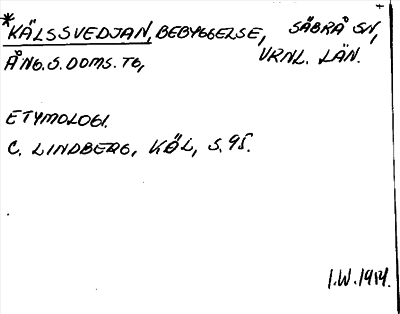 *KÄLSSVEDJAN, BEBYGGELSE, SÄBRÅ SN,
ÅNG. S. DOMS. TG, VRNL. LÄN.
ETYMOLOGI.
C. LINDBERG, KÖL, S. 95.
I.W. 1914.